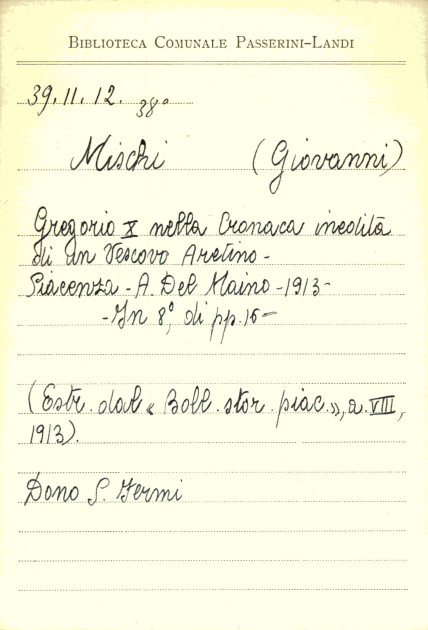 BIBLIOTECA COMUNALE PASSERINI-LANDI
39.11.12. 38°
Mischi (Giovanni)
Gregorio X nella Cronaca inedita
di un Vescovo Aretino-
Piacenza - A. Del Maino - 1913 -
- In 8°, di pp. 16 -
(Estr. dal « Boll. stor. piac. », a. VIII,
1913).
Dono S. Fermi